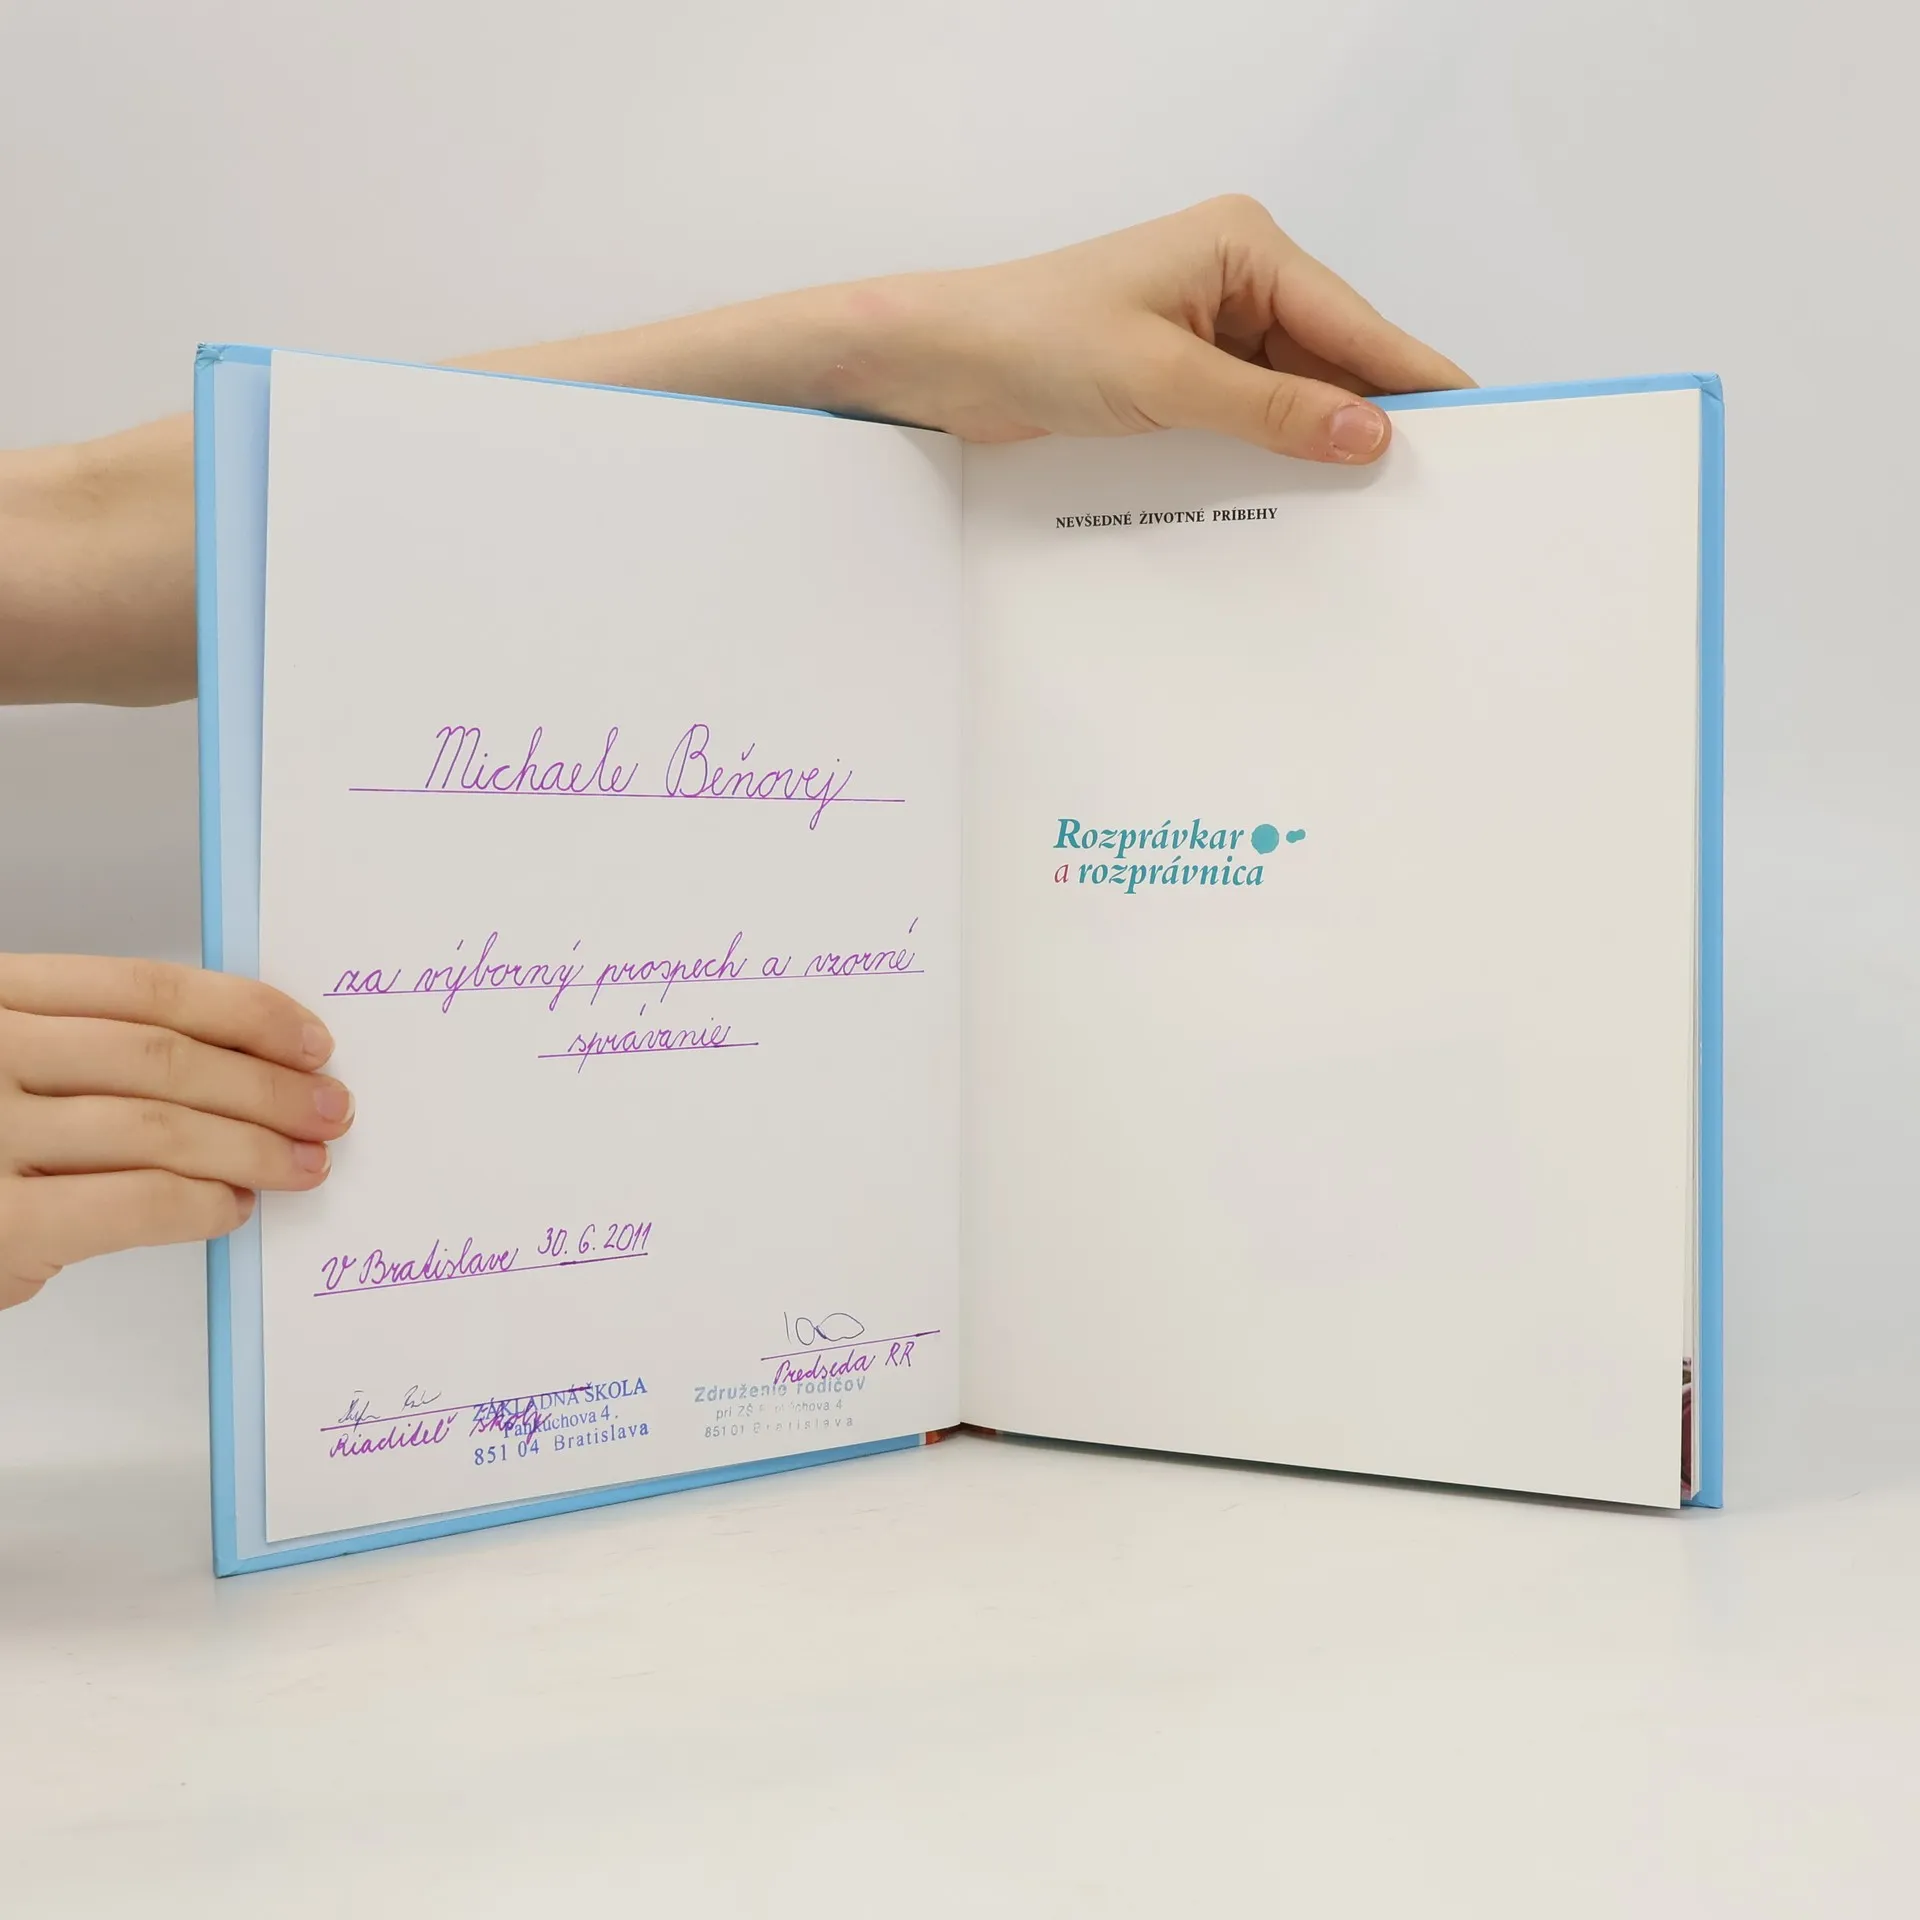 Michaele Beňovej
za výborný prospech a vzorné
správanie
V Bratislave 30.6.2011
Predseda RR
Riaditeľ školy
ZÁKLADNÁ ŠKOLA
Pankúchova 4.
851 04 Bratislava
Združenie rodičov
pri ZŠ
851 01 Bratislava
NEVŠEDNÉ ŽIVOTNÉ PRÍBEHY
Rozprávkar
a rozprávnica